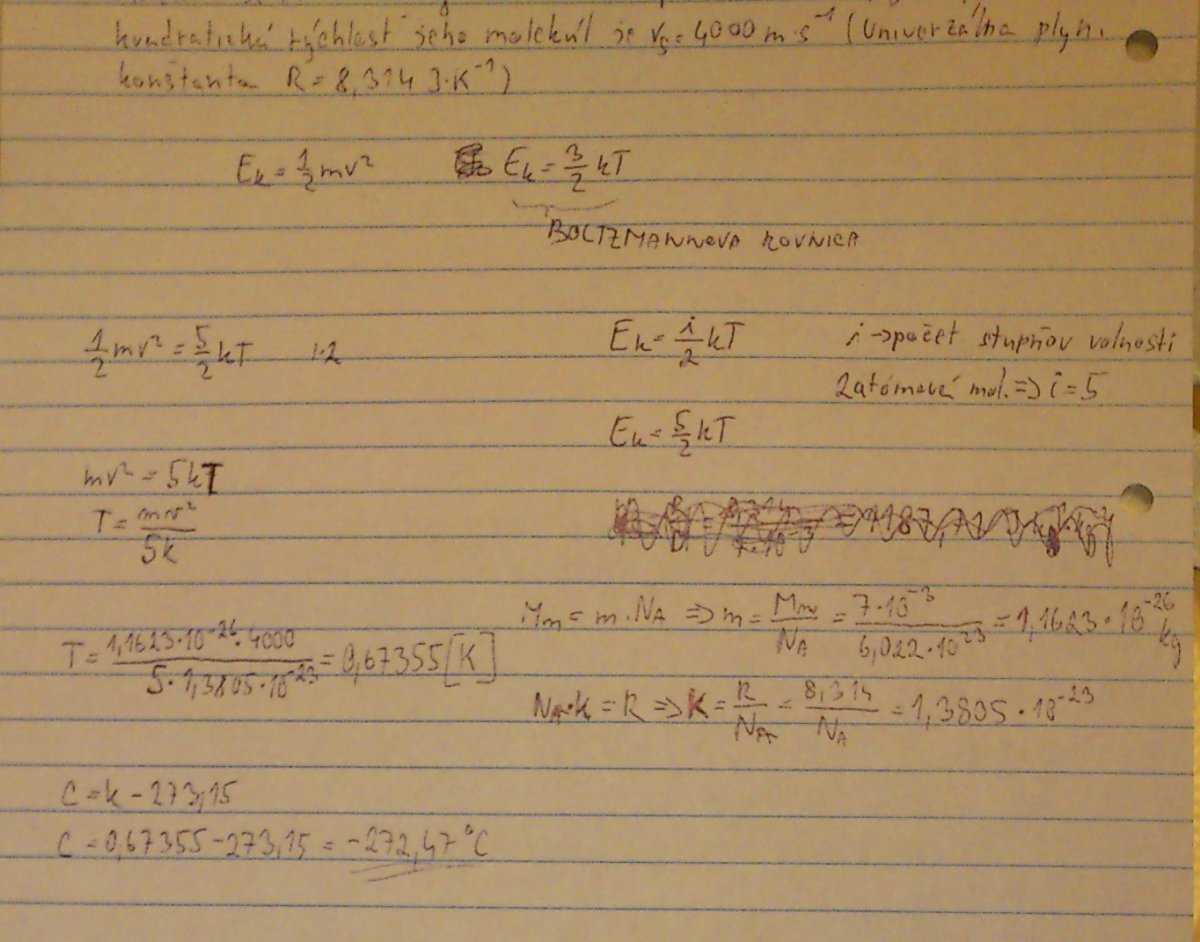 kvadratická rýchlosť jeho molekúl je vₛ = 4000 m·s⁻¹ (Univerzálna plyn.
konštanta R = 8,314 J·K⁻¹)
Eₖ = 1/2 mv² Eₖ = 3/2 kT
BOLTZMANNOVA ROVNICA
1/2 mv² = 5/2 kT |·2
Eₖ = i/2 kT i → počet stupňov volnosti
2atómová mol. => i = 5
Eₖ = 5/2 kT
mv² = 5kT
T = mv²/5k
Mₘ = m · Nᴀ => m = Mₘ/Nᴀ = 7·10⁻³/6,022·10²³ = 1,1623·10⁻²⁶ kg
T = 1,1623·10⁻²⁶·4000/5·1,3805·10⁻²³ = 0,67355 [K]
Nᴀ·k = R => K = R/Nᴀ = 8,314/Nᴀ = 1,3805·10⁻²³
C = k - 273,15
C = 0,67355 - 273,15 = -272,47 °C